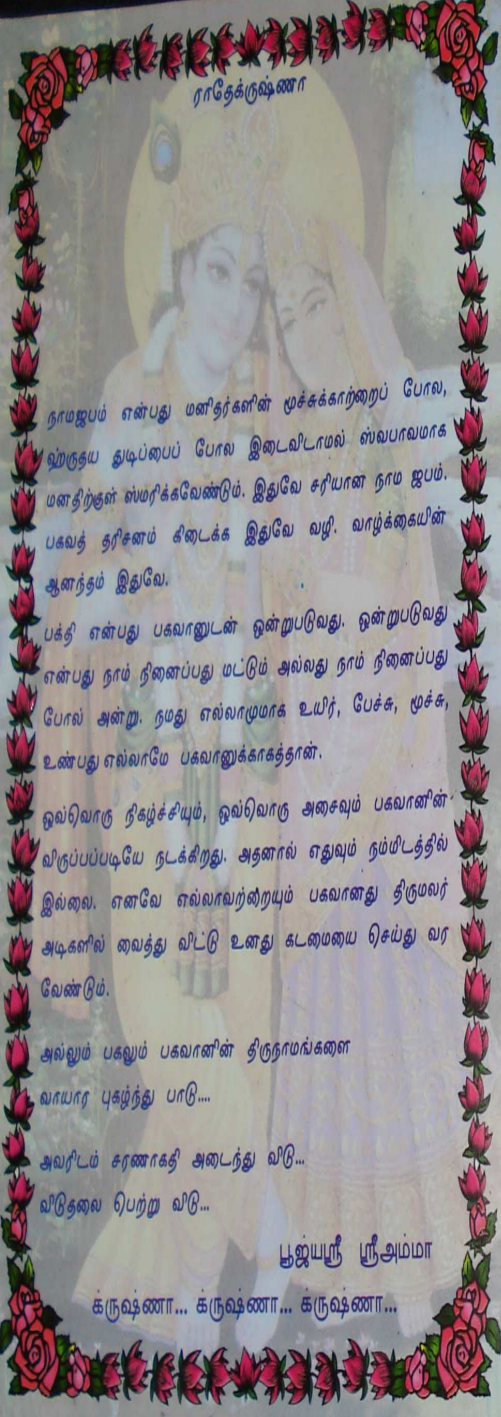 ராதேக்ருஷ்ணா
நாமஜபம் என்பது மனிதர்களின் மூச்சுக்காற்றைப் போல,
ஹ்ருதய துடிப்பைப் போல இடைவிடாமல் ஸ்வபாவமாக
மனதிற்குள் ஸ்மரிக்கவேண்டும். இதுவே சரியான நாம ஜபம்.
பகவத் தரிசனம் கிடைக்க இதுவே வழி. வாழ்க்கையின்
ஆனந்தம் இதுவே.
பக்தி என்பது பகவானுடன் ஒன்றுபடுவது. ஒன்றுபடுவது
என்பது நாம் நினைப்பது மட்டும் அல்லது நாம் நினைப்பது
போல் அன்று. நமது எல்லாமுமாக உயிர், பேச்சு, மூச்சு,
உண்பது எல்லாமே பகவானுக்காகத்தான்.
ஒவ்வொரு நிகழ்ச்சியும், ஒவ்வொரு அசைவும் பகவானின்
விருப்பப்படியே நடக்கிறது. அதனால் எதுவும் நம்மிடத்தில்
இல்லை. எனவே எல்லாவற்றையும் பகவானது திருமலர்
அடிகளில் வைத்து விட்டு உனது கடமையை செய்து வர
வேண்டும்.
அல்லும் பகலும் பகவானின் திருநாமங்களை
வாயார புகழ்ந்து பாடு....
அவரிடம் சரணாகதி அடைந்து விடு...
விடுதலை பெற்று விடு...
பூஜ்யஸ்ரீ ஸ்ரீஅம்மா
க்ருஷ்ணா... க்ருஷ்ணா... க்ருஷ்ணா...